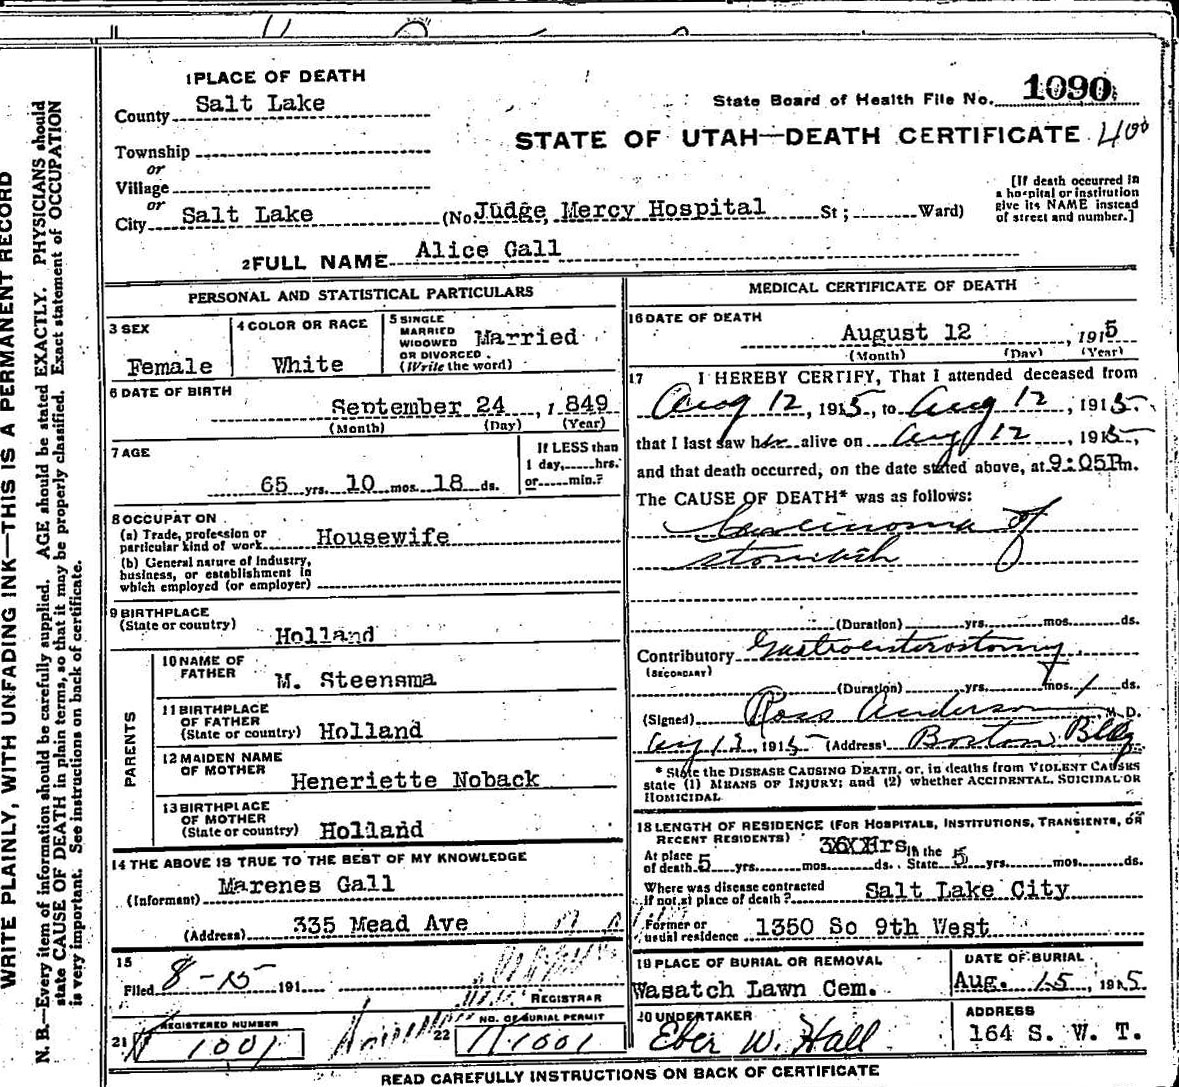 1 PLACE OF DEATH
County Salt Lake
State Board of Health File No. 1090
STATE OF UTAH—DEATH CERTIFICATE 400
Township
or
Village
or
City Salt Lake (No. Judge Mercy Hospital St; Ward)
[If death occurred in
a hospital or institution
give its NAME instead
of street and number.]
2 FULL NAME Alice Gall
PERSONAL AND STATISTICAL PARTICULARS
3 SEX
Female
4 COLOR OR RACE
White
5 SINGLE
MARRIED
WIDOWED
OR DIVORCED.
(Write the word)
Married
6 DATE OF BIRTH
September 24, 1849
(Month) (Day) (Year)
7 AGE
65 yrs. 10 mos. 18 ds.
If LESS than
1 day, hrs.
or min.?
8 OCCUPATION
(a) Trade, profession or
particular kind of work Housewife
(b) General nature of Industry,
business, or establishment in
which employed (or employer)
9 BIRTHPLACE
(State or country)
Holland
PARENTS
10 NAME OF
FATHER
M. Steensma
11 BIRTHPLACE
OF FATHER
(State or country) Holland
12 MAIDEN NAME
OF MOTHER
Heneriette Noback
13 BIRTHPLACE
OF MOTHER
(State or country) Holland
14 THE ABOVE IS TRUE TO THE BEST OF MY KNOWLEDGE
(Informant) Marenes Gall
(Address) 335 Mead Ave
15
Filed 8-15 191
REGISTRAR
REGISTERED NUMBER
21 1001
NO. OF BURIAL PERMIT
22 1001
MEDICAL CERTIFICATE OF DEATH
16 DATE OF DEATH
August 12, 1915
(Month) (Day) (Year)
17 I HEREBY CERTIFY, That I attended deceased from
Aug 12, 1915, to Aug 12, 1915.
that I last saw her alive on Aug 12, 1915,
and that death occurred, on the date stated above, at 9:05P m.
The CAUSE OF DEATH* was as follows:
Carcinoma of
stomach
(Duration) yrs. mos. ds.
Contributory Gastroenterostomy
(SECONDARY)
(Duration) yrs. mos. 1 ds.
(Signed) Ross Anderson M. D.
Aug 13, 1915 (Address) Boston Bldg
* State the DISEASE CAUSING DEATH, or, in deaths from VIOLENT CAUSES
state (1) MEANS OF INJURY; and (2) whether ACCIDENTAL, SUICIDAL OR
HOMICIDAL.
18 LENGTH OF RESIDENCE (FOR HOSPITALS, INSTITUTIONS, TRANSIENTS, OR
RECENT RESIDENTS) Hrs.
At place
of death 5 yrs. mos. ds. In the State 5 yrs. mos. ds.
Where was disease contracted
if not at place of death? Salt Lake City
Former or
usual residence 1350 So 9th West
19 PLACE OF BURIAL OR REMOVAL
Wasatch Lawn Cem.
DATE OF BURIAL
Aug. 15, 1915.
20 UNDERTAKER
Eber W. Hall
ADDRESS
164 S. W. T.
READ CAREFULLY INSTRUCTIONS ON BACK OF CERTIFICATE
WRITE PLAINLY, WITH UNFADING INK—THIS IS A PERMANENT RECORD
N. B.—Every item of information should be carefully supplied. AGE should be stated EXACTLY. PHYSICIANS should
state CAUSE OF DEATH in plain terms, so that it may be properly classified. Exact statement of OCCUPATION
is very important. See instructions on back of certificate.